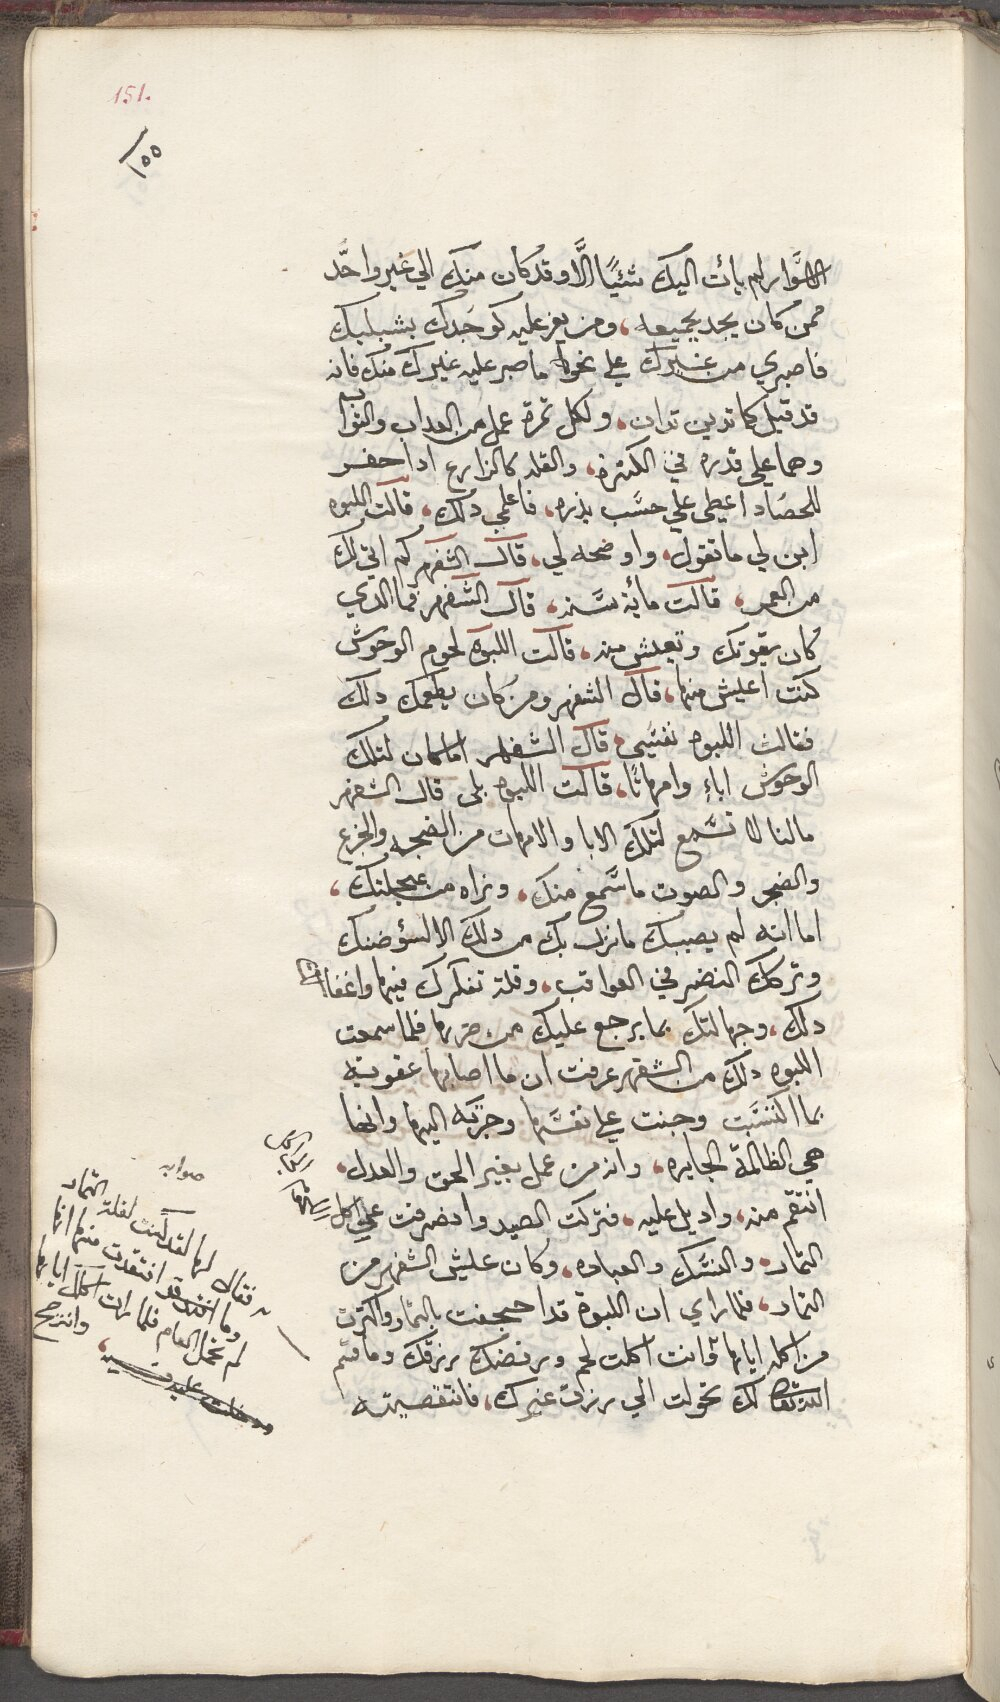 151.
١٥٥
الاسَّوار لم يات اليك شئيًا الَّا وقد كان منك الي غير واحدّ
ممن كان يجد بجميعه، ومن يعز عليه كوجدك بشبليك
فاصبري من غيرك علي نحو ما صبر عليه غيرك منك فانه
قد قيل كما تدين تدان، ولكل ثمرة عمل من العداب والثواب
وهما علي قدره في الكثرة، والقله كالزارع ادا حضر
للحصاد اعطي علي حسَّب بذره، فاعلمي دلك، قالت اللبوه
ابن لي ما تقول، واوضحه لي، قال الشغهر كم اتي لك
من العمر، قالت مأية سنَّه، قال الشغهر فما الدي
كان يقوتك وتعيش منه، قالت اللبوة لحوم الوحوش
كنت اعيش منها، قال الشغهر ومن كان يطعمك دلك
فقالت اللبوه نفسَّي، قال الشغهر اما كان لتلك
الوحوش اباءٍ وامهاتًا، قالت اللبوه بلى قال الشغهر
مالنا لا نسَّمع لتلك الابا والامهات من الضجه والجزع
والضجر والصوت ما سَّمع منك، ونراه من عجلتك،
اما انه لم يصيبك ما نزل بك من دلك الا لسؤ ضنك
وتركك النضر في العواقب، وقلة تفكرك فيها واغفالك
دلك، وجهالتك بما يرجع عليك من ضرها فلما سمعت
اللبوه دلك من الشغهر عرفت ان ما اصابها عقوبة
بما اكتسَّبت وجنت علي نفسَّها وجرته اليها وانها
هي الظالمة الجايره، وانه من عمل بغير الحق والعدل،
انتقم منه، واديل عليه، فتركت الصيد وانضرفت علي اكل
الثمار، والنسَّك والعباده، وكان عيش الشغهر من
الثمار، فلما راي ان اللبوة قد اجحفت بالثمار واكثرت
من اكله اياها وانت اكلت لحم ورفضك رزقك وما قسم
الله لك تحولت الي رزق غيرك، فانتقصيته
صوابه
فقال لها لقد كنت لقلة الثمار
وما افتقد قد افتقدت منها انها
لم تحمل العام فلما رات اكلك اياها